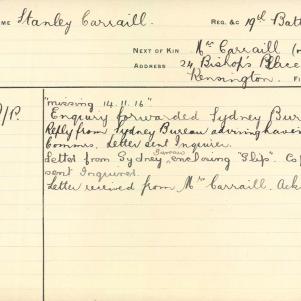 ME Stanley Carraill. REG. &C 19th Batt
NEXT OF KIN Mrs Carraill (m
ADDRESS 24 Bishop's Place
Kensington. FI
/P. "Missing 14.11.16"
Enquiry forwarded Sydney Bur
Reply from Sydney Bureau advising having
Commd. Letter sent Inquirer.
Letter from Sydney Bureau enclosing "Slip". Co
sent Inquirer.
Letter received from Mrs Carraill. Ack